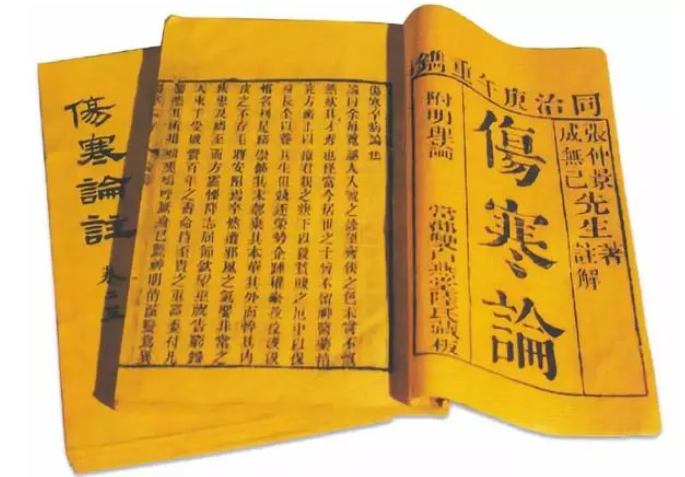 同治庚午重鐫
張仲景
成無己
先生
著
註解
傷寒論
附明理論
當湖雙白燕堂陸氏藏板
傷寒卒病論
論曰余每覽越人入虢之診望齊侯之色未嘗不慨
然歎其才秀也怪當今居世之士曾不留神醫藥精
究方術上以療君親之疾下以救貧賤之厄中以保
身長全以養其生但競逐榮勢企踵權豪孜孜汲汲
惟名利是務崇飾其末忽棄其本華其外而悴其內
皮之不存毛將安附焉卒然遭邪風之氣嬰非常之
疾患及禍至而方震慄降志屈節欽望巫祝告窮歸
天束手受敗賫百年之壽命持至貴之重器委付凡
醫恣其所措咄嗟嗚呼厥身已斃神明消滅變為異
傷寒論註
卷二